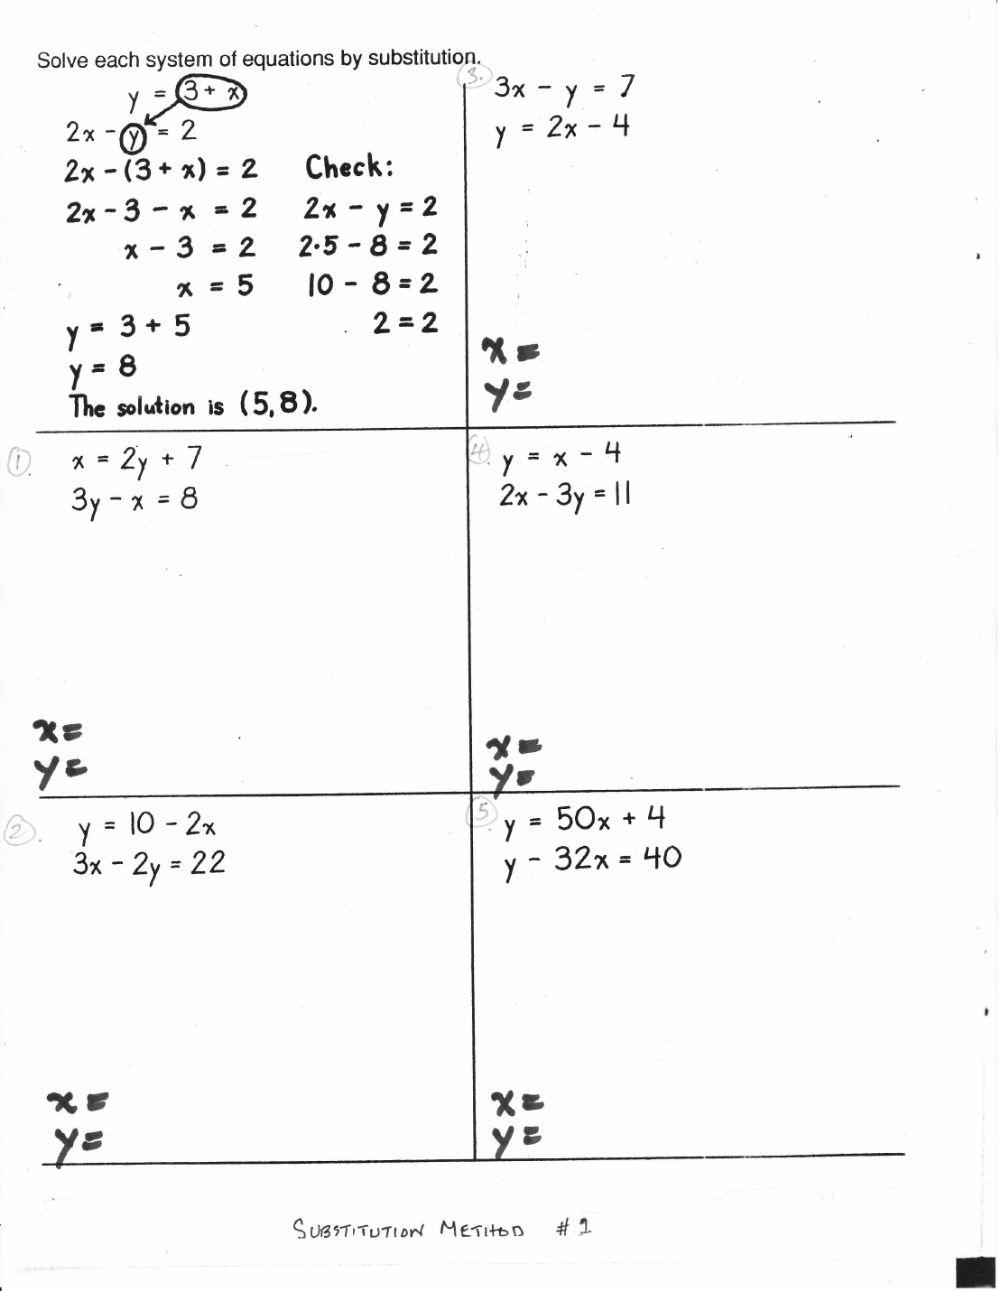 Solve each system of equations by substitution.
y = 3 + x
2x - y = 2
2x - (3 + x) = 2
2x - 3 - x = 2
x - 3 = 2
x = 5
y = 3 + 5
y = 8
The solution is (5,8).
Check:
2x - y = 2
2·5 - 8 = 2
10 - 8 = 2
2 = 2
1.
x = 2y + 7
3y - x = 8
x =
y =
2.
y = 10 - 2x
3x - 2y = 22
x =
y =
3.
3x - y = 7
y = 2x - 4
x =
y =
4.
y = x - 4
2x - 3y = 11
x =
y =
5.
y = 50x + 4
y - 32x = 40
x =
y =
SUBSTITUTION METHOD # 1